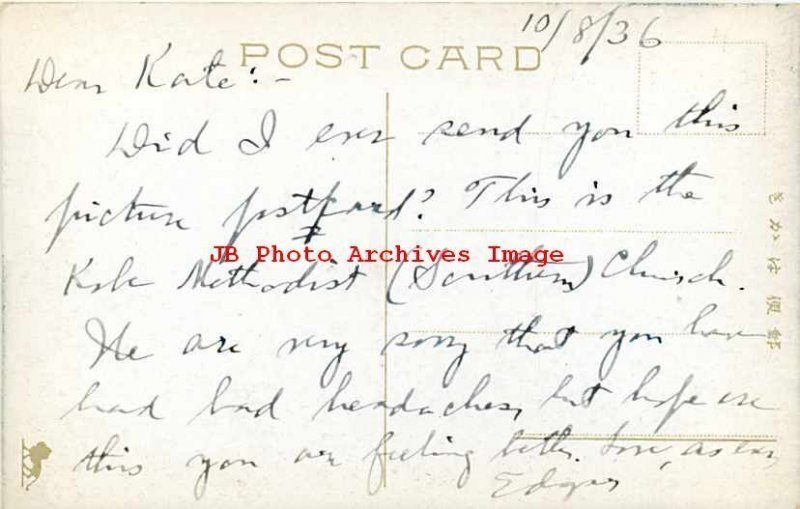 10/8/36
POST CARD
Dear Kate:-
Did I ever send you this
picture postcard? This is the
JB Photo Archives Image
Kobe Methodist (Southern) Church.
We are very sorry that you have
had bad headaches, but hope ere
this you are feeling better. Love, as ever,
Edgar
きかは便郵